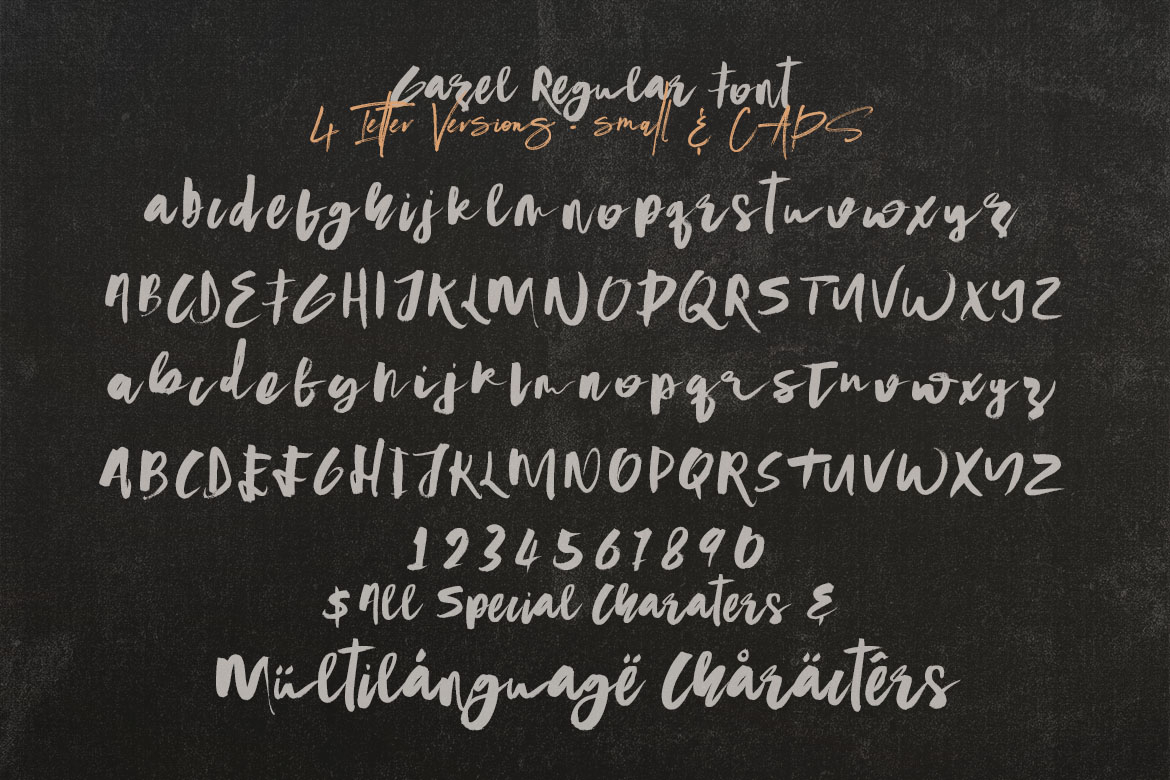 Gazel Regular Font
4 letter Versions . small & CAPS
abcdefghijklmnopqrstuvwxyz
ABCDEFGHIJKLMNOPQRSTUVWXYZ
abcdefghijklmnopqrstuvwxyz
ABCDEFGHIJKLMNOPQRSTUVWXYZ
1234567890
$ All Special Charaters &
Mültilánguagë Chåräctêrs